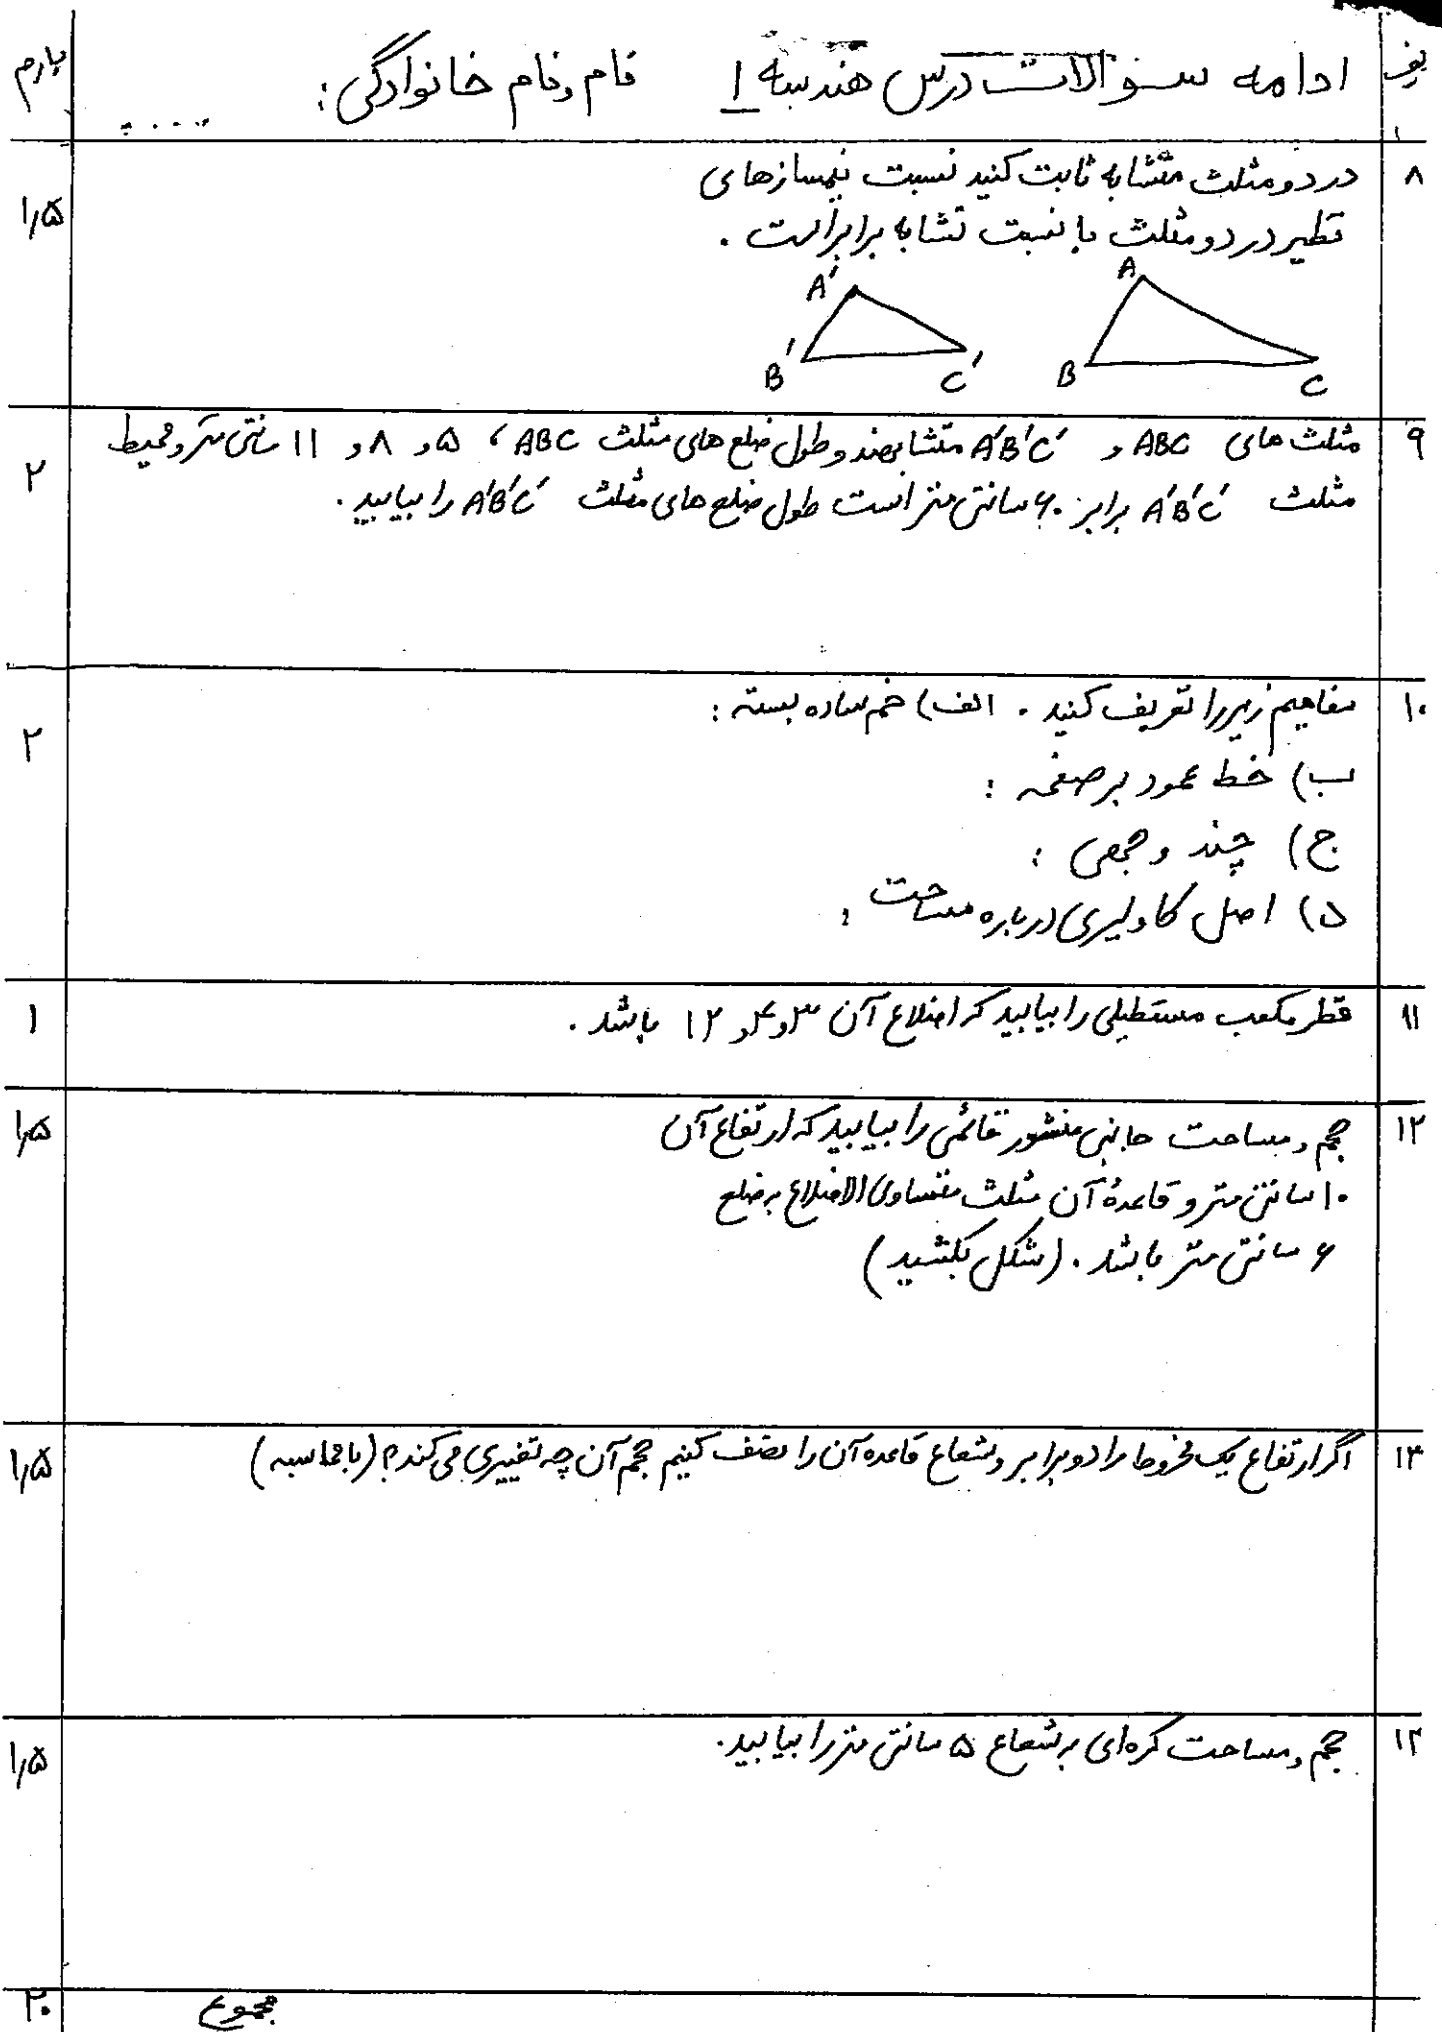 ردیف ادامه سئوالات درس هندسه ۱ نام و نام خانوادگی: بارم
۸ در دو مثلث متشابه ثابت کنید نسبت نیمسازهای ۱/۵
نظیر در دو مثلث با نسبت تشابه برابر است .
A' A
B' C' B C
۹ مثلث های ABC و A'B'C' متشابهند و طول ضلع های مثلث ABC ، ۵ و ۸ و ۱۱ سانتی متر و محیط ۲
مثلث A'B'C' برابر ۶۰ سانتی متر است طول ضلع های مثلث A'B'C' را بیابید .
۱۰ مفاهیم زیر را تعریف کنید . الف) خم ساده بسته : ۲
ب) خط عمود بر صفحه :
ج) چند وجهی :
د) اصل کاوالیری درباره مساحت :
۱۱ قطر مکعب مستطیلی را بیابید که اضلاع آن ۳ و ۴ و ۱۲ باشد . ۱
۱۲ حجم و مساحت جانبی منشور قائمی را بیابید که ارتفاع آن ۱/۵
۱۰ سانتی متر و قاعدهٔ آن مثلث متساوی الاضلاع به ضلع
۶ سانتی متر باشد . (شکل بکشید)
۱۳ اگر ارتفاع یک مخروط را دو برابر و شعاع قاعده آن را نصف کنیم حجم آن چه تغییری می کند؟ (با محاسبه) ۱/۵
۱۴ حجم و مساحت کره ای به شعاع ۵ سانتی متر را بیابید. ۱/۵
مجموع ۲۰